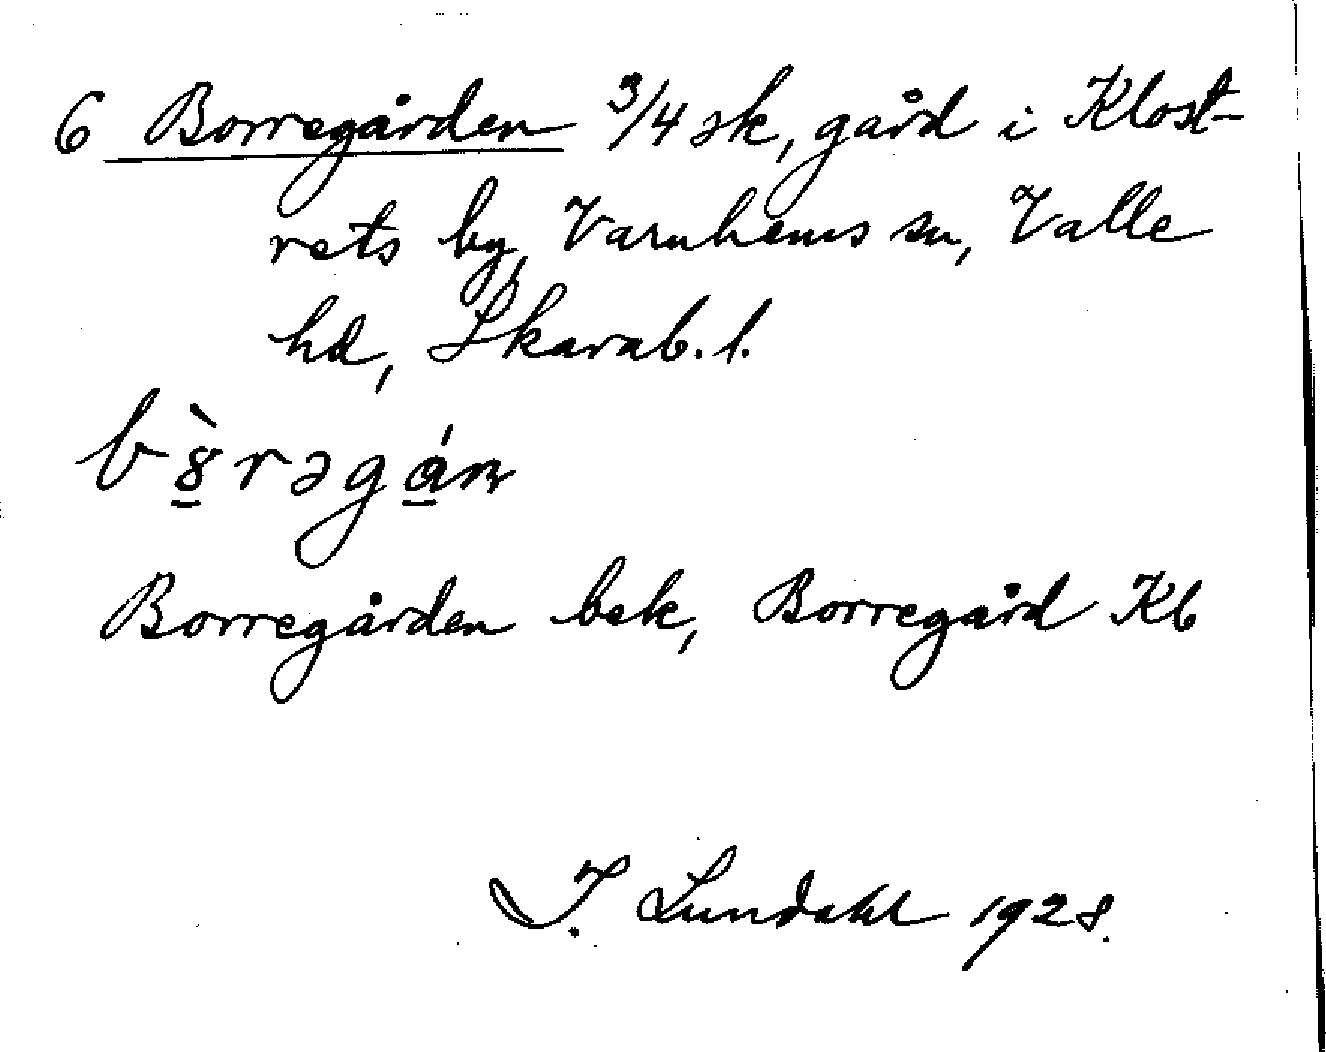 6 Borregården 3/4 sk, gård i Klost-
rets by, Varnhems sn, Valle
hd, Skarab. l.
b8̱̀rəgá̱ɳ
Borregården bek, Borregård Kb
I. Lundahl 1928.